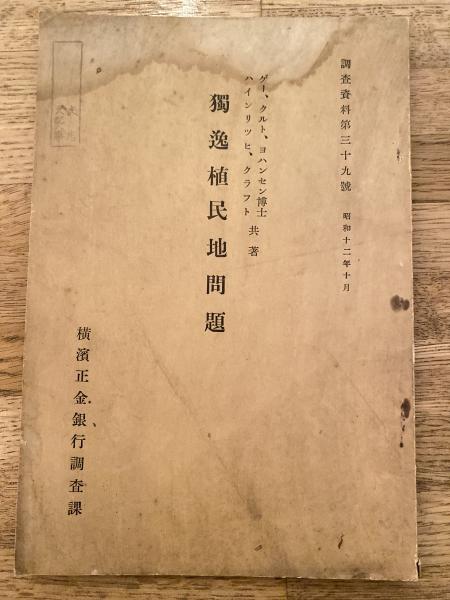 調査資料第三十九號 昭和十二年十月
ゲー、クルト、ヨハンセン博士
ハインリツヒ、クラフト
共著
獨逸植民地問題
橫濱正金銀行調査課